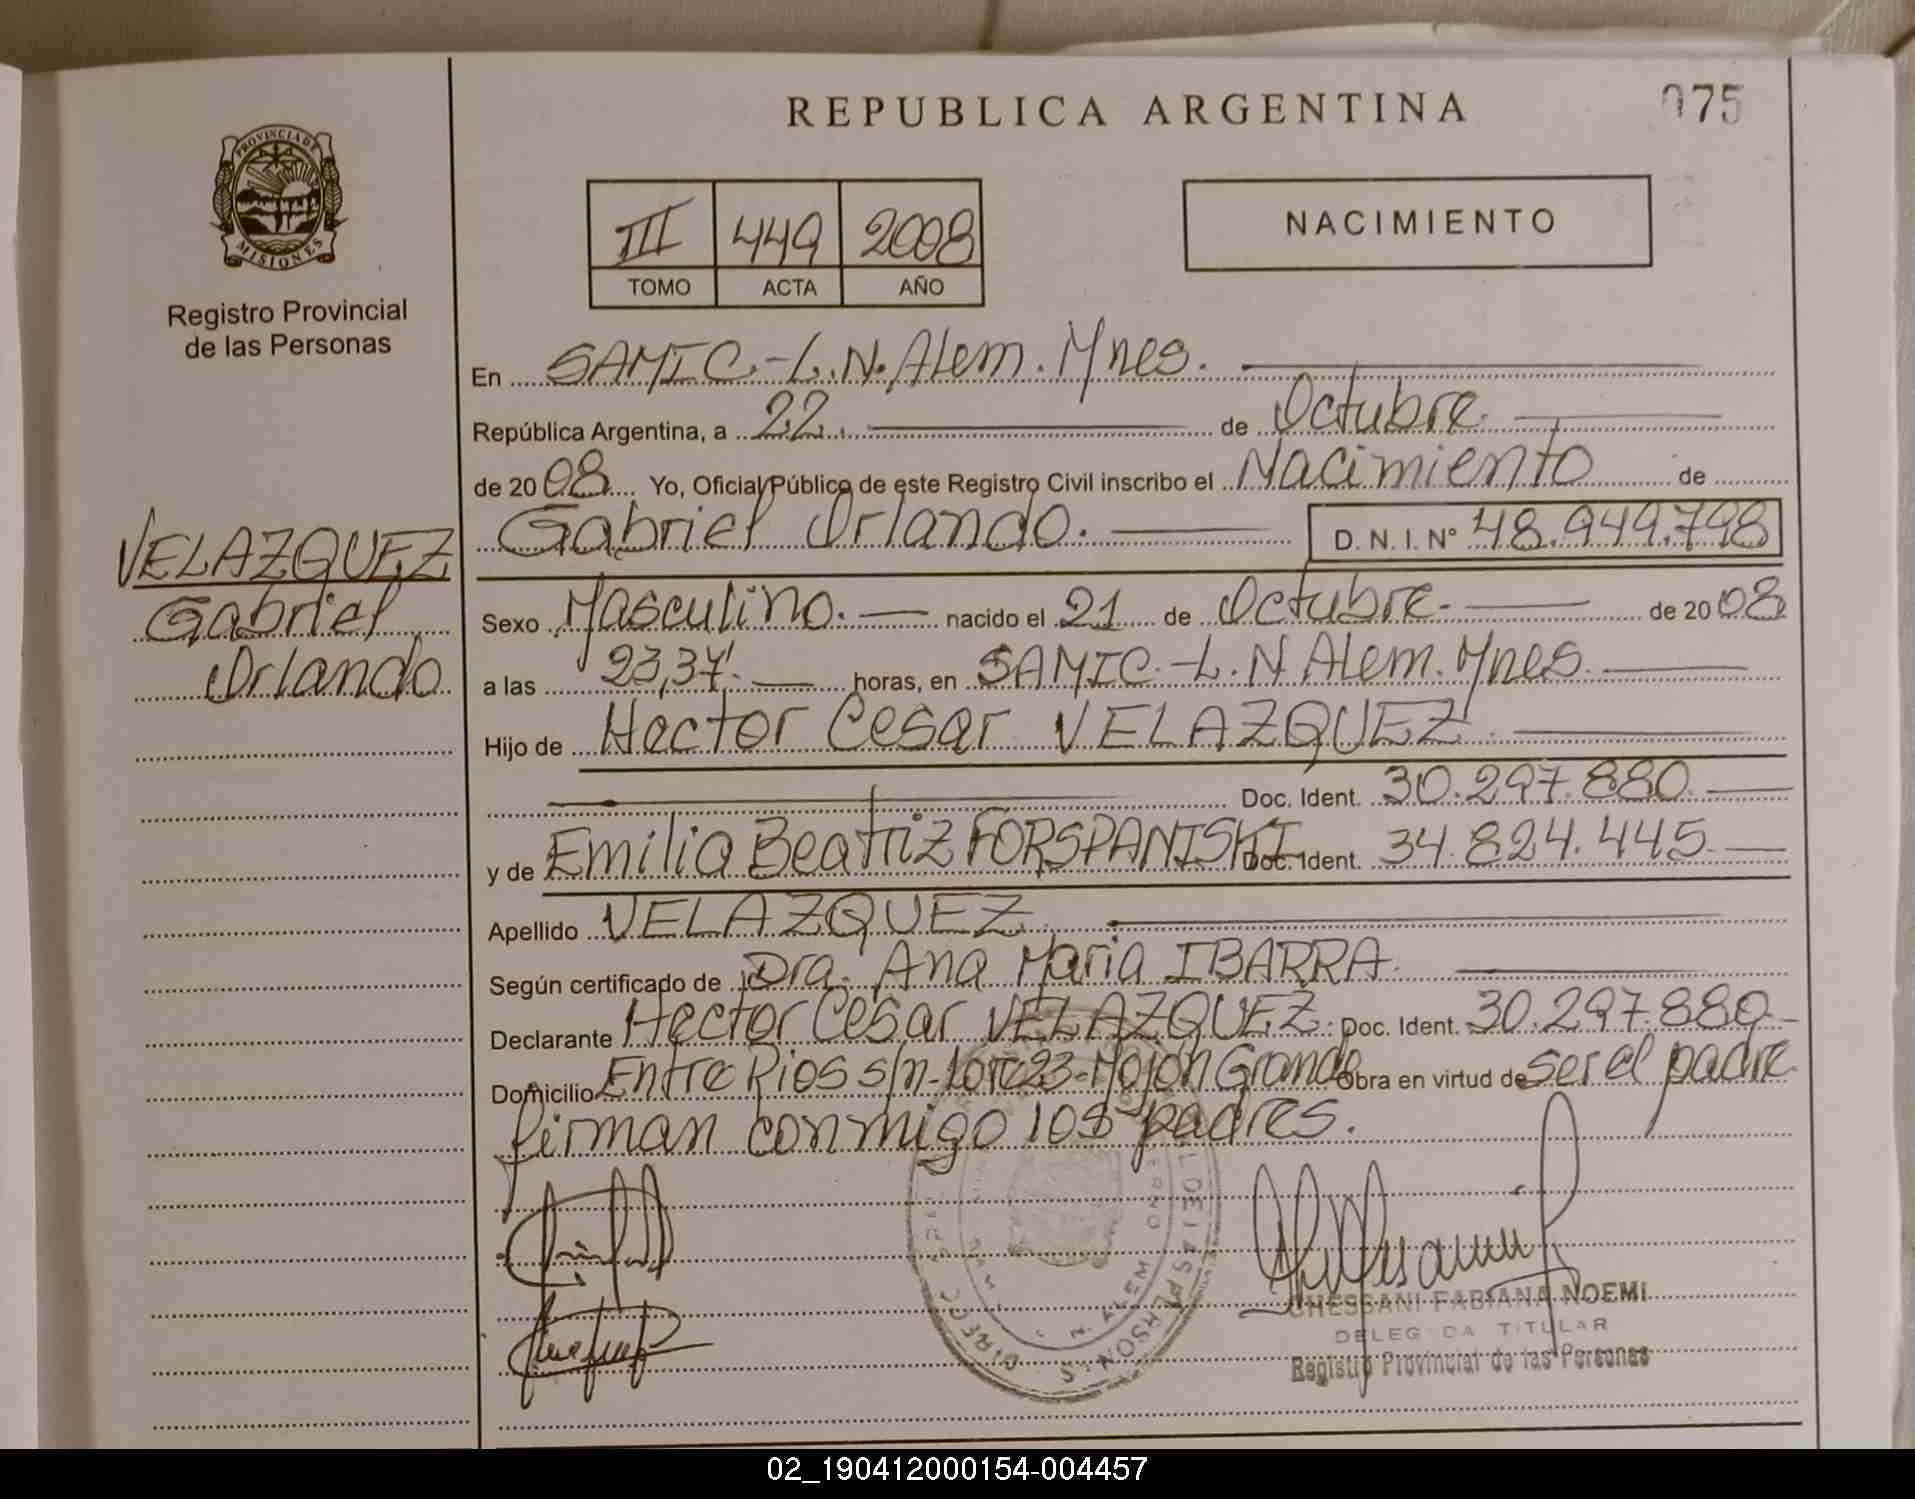 REPUBLICA ARGENTINA
075
PROVINCIA DE
MISIONES
Registro Provincial
de las Personas
III 449 2008
TOMO ACTA AÑO
NACIMIENTO
En SAMIC.-L.N.Alem.Mnes.
República Argentina, a 22. de Octubre.
de 2008 Yo, Oficial Público de este Registro Civil inscribo el Nacimiento de
Gabriel Orlando. D.N.I.Nº 48.949.798
VELAZQUEZ
Gabriel
Orlando
Sexo Masculino. nacido el 21 de Octubre. de 2008
a las 23,37. horas, en SAMIC.-L.N Alem.Mnes.
Hijo de Hector Cesar VELAZQUEZ
Doc. Ident. 30.297.880.
y de Emilia Beatriz FORSPANISKI Doc. Ident. 34.824.445.
Apellido VELAZQUEZ.
Según certificado de Dra. Ana Maria IBARRA.
Declarante Hector Cesar VELAZQUEZ. Doc. Ident. 30.297.880
Domicilio Entre Rios s/n-Lote 23-Mojon Grande Obra en virtud de ser el padre
firman conmigo los padres.
GHESSANI FABIANA NOEMI
DELEGADA TITULAR
Registro Provincial de las Personas
02_190412000154-004457